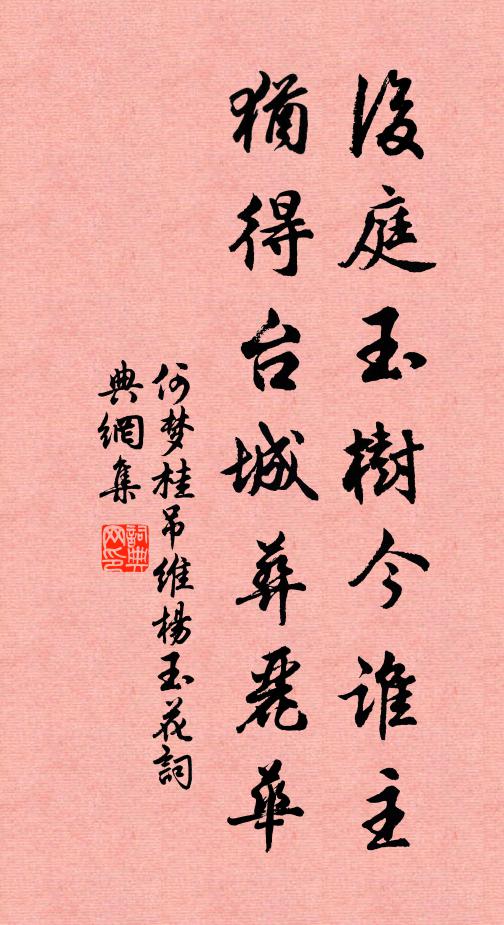 後庭玉樹今誰主
猶得台城葬麗華
何梦桂吊維楊玉花詞
典網集
詞典
网印